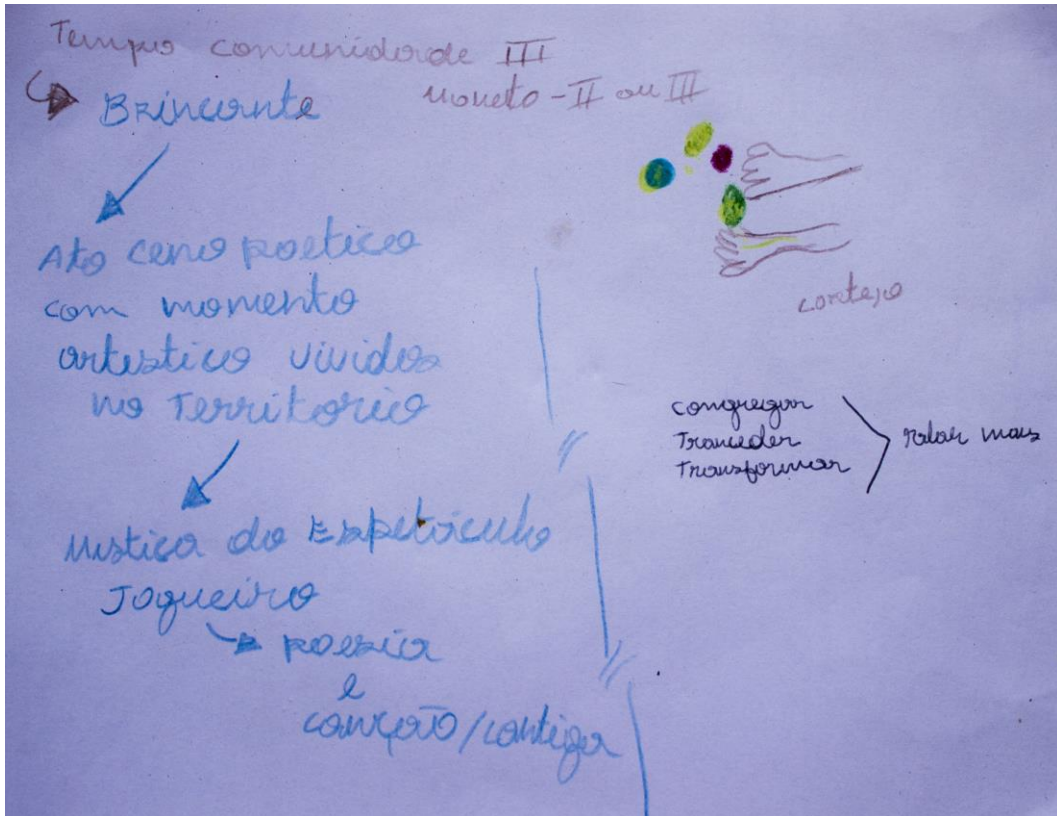 Tempo comunidade III
Brincante
moneto - II ou III
Ato ceno poetico
com momento
artistico vividos
no Territorio
Mistica do Espetáculo
Jogueiro
poesia
e
canção/cantiga
cortejo
congregar
Tranceder
Transformar
mais